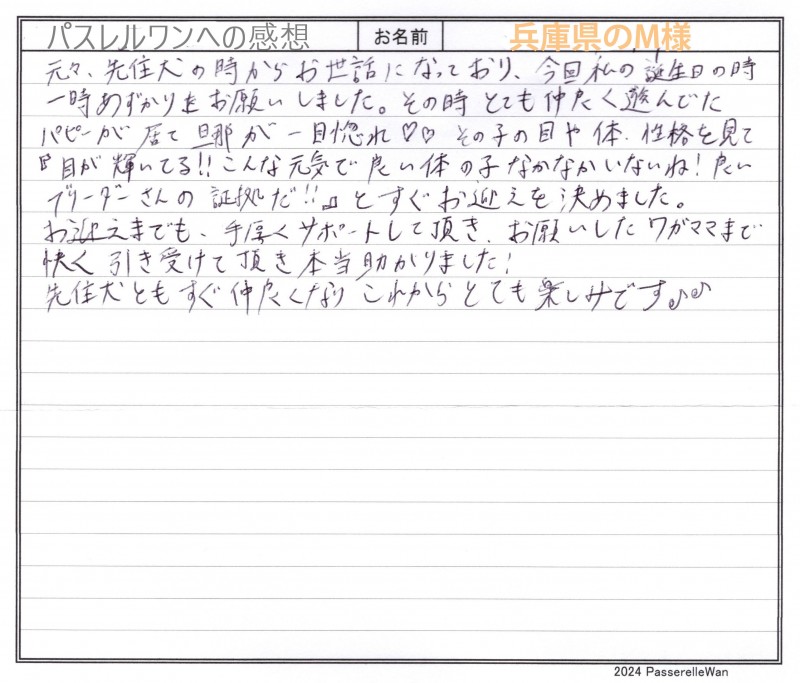 パスレルワンへの感想 お名前 兵庫県のM様
元々、先住犬の時からお世話になっており、今回私の誕生日の時
一時あずかりをお願いしました。その時とても仲良く遊んでた
パピーが居て旦那が一目惚れ♡♡ その子の目や体、性格を見て
『目が輝いてる!!こんな元気で良い体の子なかなかいないね!良い
ブリーダーさんの証拠だ!!』とすぐお迎えを決めました。
お迎えまでも、手厚くサポートして頂き、お願いしたワガママまで
快く引き受けて頂き本当助かりました!
先住犬ともすぐ仲良くなりこれからとても楽しみです♪♪
2024 PasserelleWan